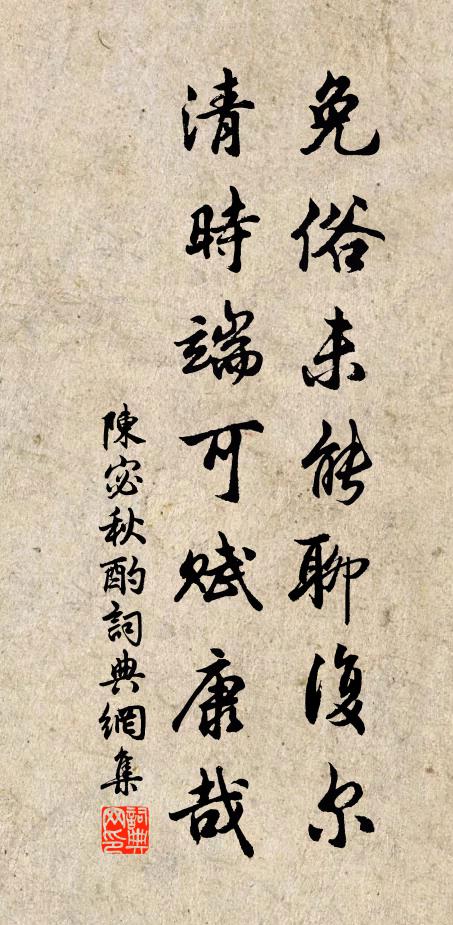 免俗未能聊復尔
清時端可賦康哉
陳宓秋酌詞典網集
詞典网印